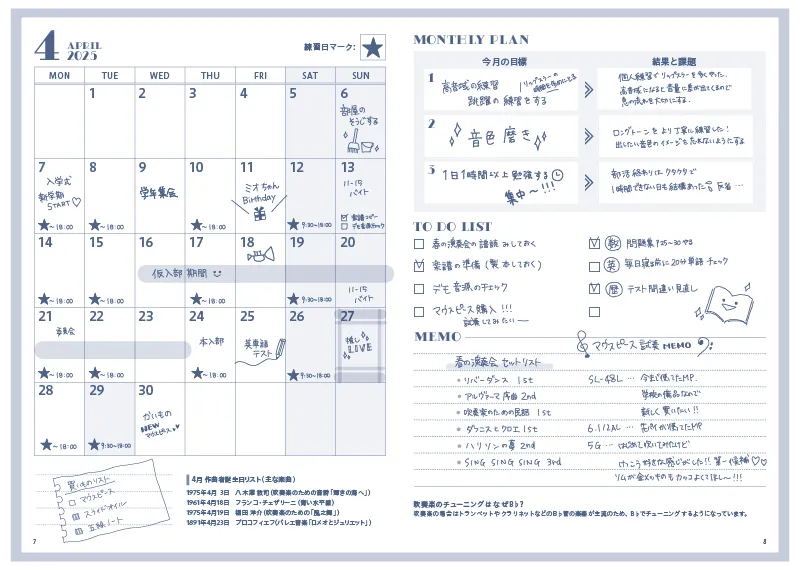 4 APRIL 2025
練習日マーク: ★
MON TUE WED THU FRI SAT SUN
1 2 3 4 5 6
部屋の
そうじする
7 8 9 10 11 12 13
入学式
新学期
START♡
学年集会
ミオちゃん
Birthday
11-15
バイト
★~18:00 ★~18:00 ★~18:00 ★9:30~18:00
楽譜コピー
デモ音源チェック
14 15 16 17 18 19 20
仮入部期間
11-15
バイト
★~18:00 ★~18:00 ★~18:00 ★9:30~18:00
21 22 23 24 25 26 27
委員会
本入部
英単語
テスト
推し
LOVE
★~18:00 ★~18:00 ★~18:00 ★9:30~18:00
28 29 30
かいもの
NEW
マウスピース♥♥
★~18:00 ★9:30~18:00
買いものリスト
マウスピース
スライドオイル
五線ノート
4月 作曲者誕生日リスト(主な楽曲)
1975年4月 3日 八木澤 教司(吹奏楽のための音詩「輝きの海へ」)
1961年4月18日 フランコ・チェザリーニ(青い水平線)
1975年4月19日 福田 洋介(吹奏楽のための「風之舞」)
1891年4月23日 プロコフィエフ(バレエ音楽「ロメオとジュリエット」)
7
MONTHLY PLAN
今月の目標 結果と課題
1
高音域の練習
リップスラーの
時間を多めにとる
跳躍の練習をする
個人練習でリップスラーを多くやった。
高音域になると音量に差が出てくるので
息の流れを大切にする。
2
音色磨き
ロングトーンをより丁寧に練習した!
出したい音色のイメージを忘れないようにする
3
1日1時間以上勉強する
集中~!!!
部活終わりにクタクタで
1時間できない日も結構あった 反省…
TO DO LIST
春の演奏会の譜読みしておく
楽譜の準備(製本しておく)
デモ音源のチェック
マウスピース購入!!!
試奏してみたい
数 問題集P25~30やる
英 毎日寝る前に20分単語チェック
歴 テスト間違い見直し
MEMO
マウスピース試奏MEMO
春の演奏会セットリスト
・リバーダンス 1st
・アルヴァマー序曲 2nd
・吹奏楽のための民話 1st
・ダフニスとクロエ 1st
・ハリソンの夢 2nd
・SING SING SING 3rd
SL-48L … 今まで使ってたMP.
学校の備品なので
新しく買いたい!!
6.1/2AL … 先パイが使ってたMP
5G … はじめて吹いてみたけど
けっこう好きな感じがした!! 第一候補♡♡
リムが金メッキのもカッコよくてほし~!!!
吹奏楽のチューニングはなぜB♭?
吹奏楽の場合はトランペットやクラリネットなどのB♭管の楽器が主流のため、B♭でチューニングするようになっています。
8